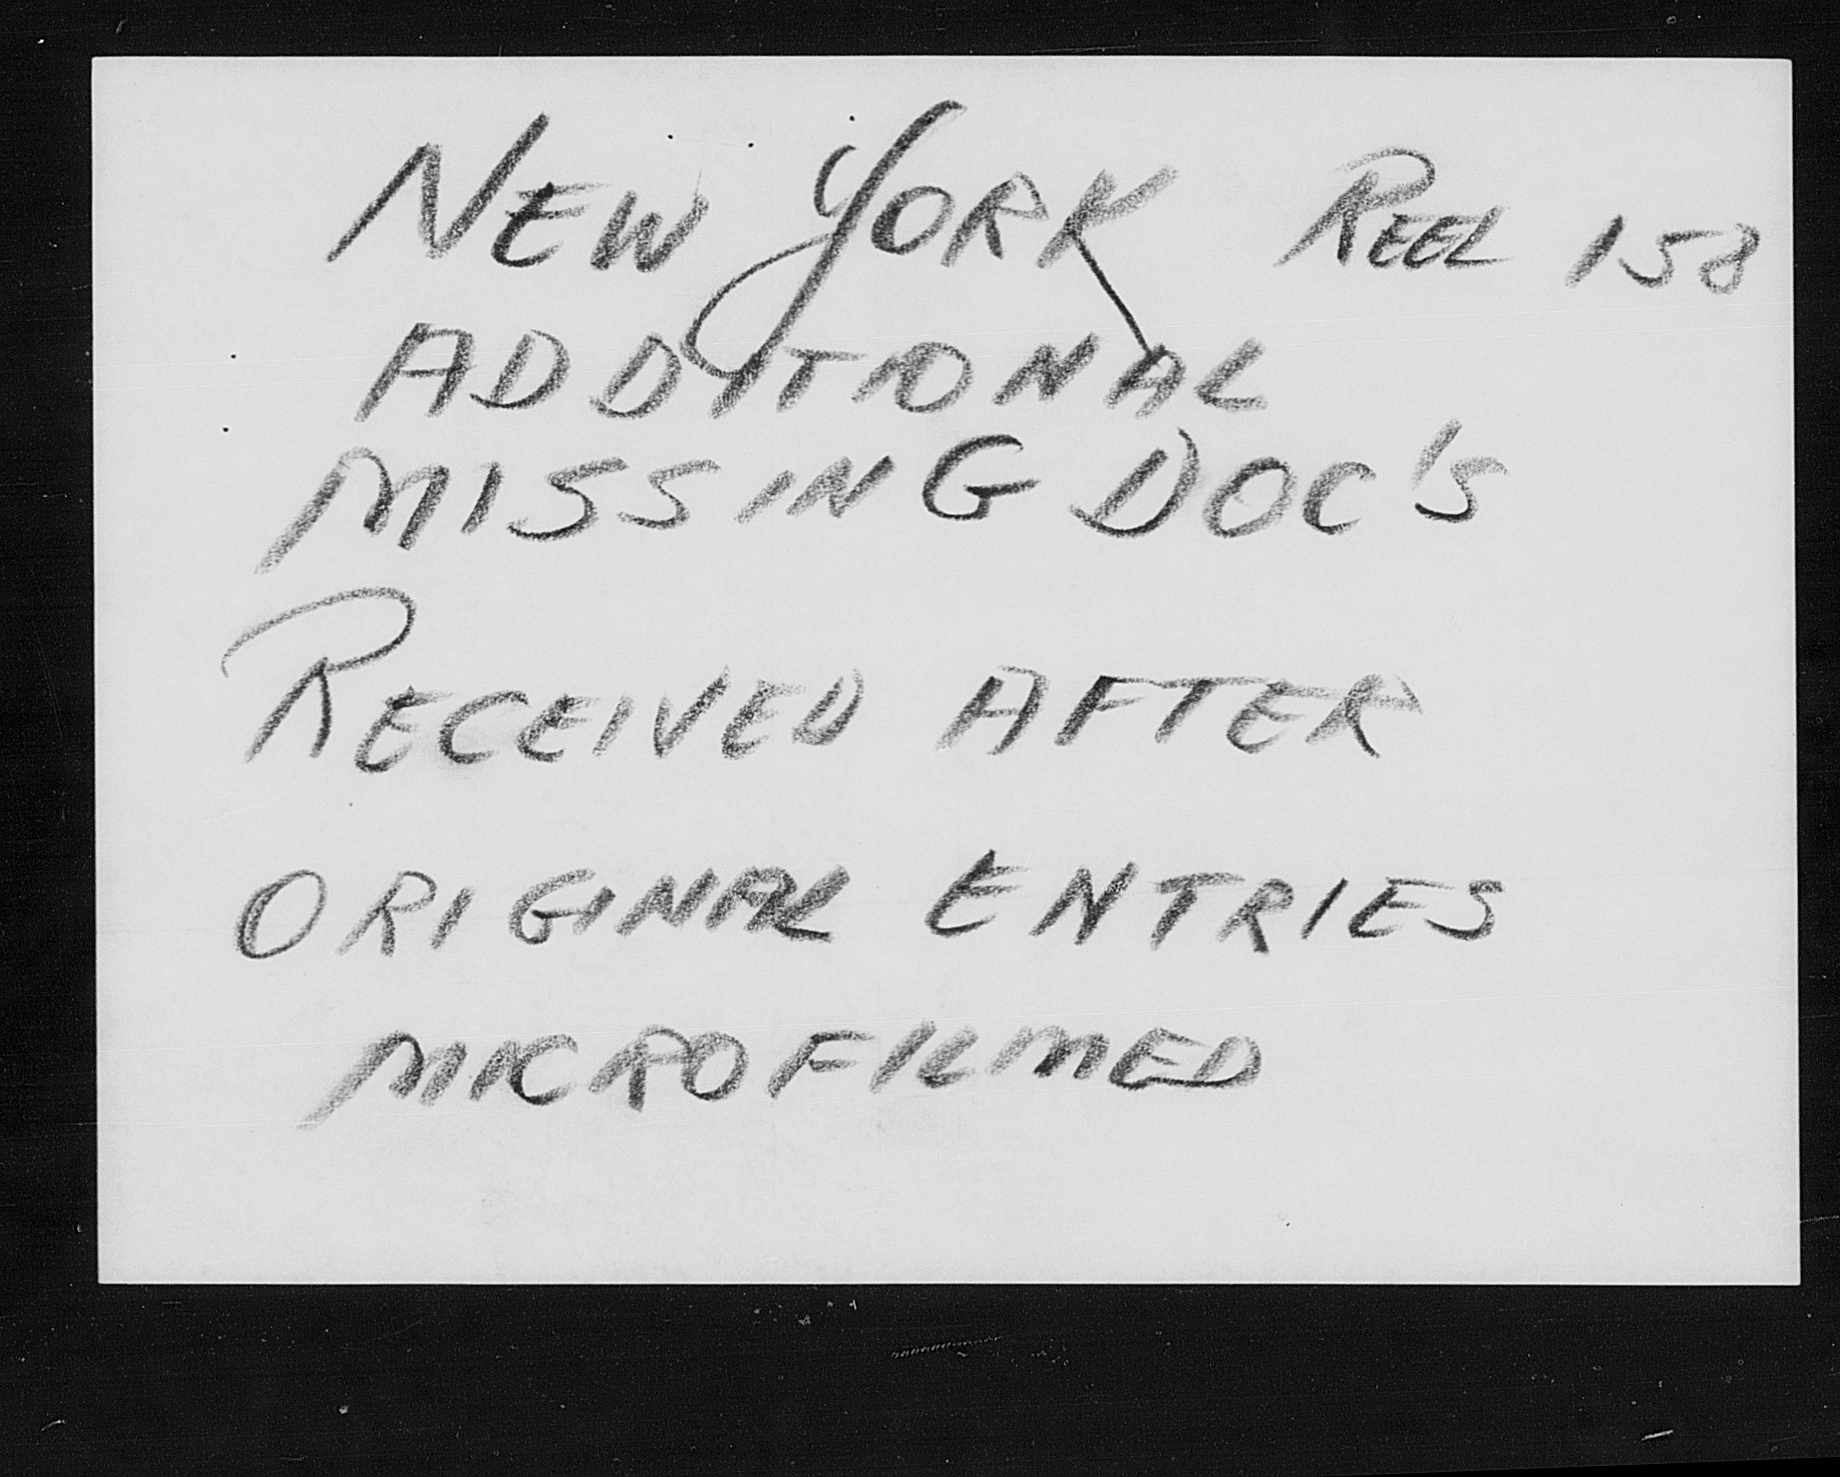 NEW YORK REEL 158
ADDITIONAL
MISSING DOC'S
RECEIVED AFTER
ORIGINAL ENTRIES
MICROFILMED